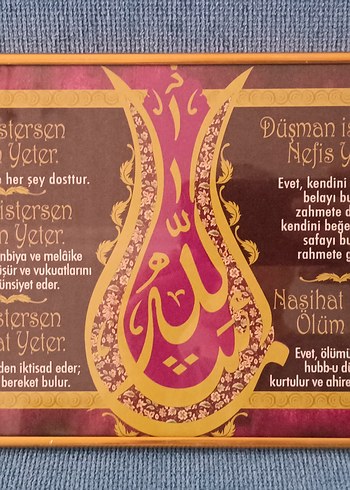 stersen
n Yeter.
n her şey dosttur.
istersen
n Yeter.
nbiya ve melâike
şür ve vukuatlarını
ünsiyet eder.
stersen
at Yeter.
den iktisad eder;
bereket bulur.
الله
Düşman is
Nefis Y
Evet, kendini
belayı bu
zahmete d
kendini beğe
safayı bu
rahmete g
Nasihat
Ölüm
Evet, ölümü
hubb-u d
kurtulur ve ahire